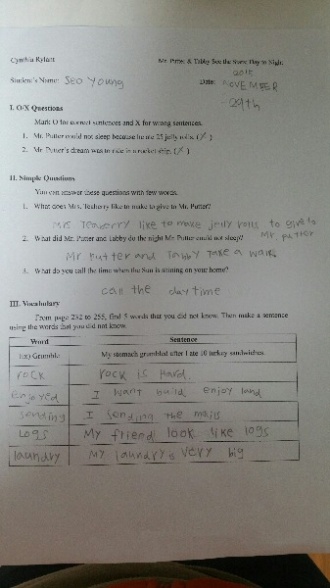 Cynthia Rylant Mr. Putter & Tabby See the Stars/ Day to Night
Student's Name: Seo Young Date: 2015
NOVEMBER
29th
I. O/X Questions
Mark O for correct sentences and X for wrong sentences.
1. Mr. Putter could not sleep because he ate 25 jelly rolls. (X)
2. Mr. Putter's dream was to ride in a rocket ship. (X)
II. Simple Questions
You can answer these questions with few words.
1. What does Mrs. Teaberry like to make to give to Mr. Putter?
Mrs Teaberry like to make jelly rolls to give to
Mr. putter
2. What did Mr. Putter and Tabby do the night Mr. Putter could not sleep?
Mr putter and Tabby Take a walk
3. What do you call the time when the Sun is shining on your home?
call the daytime
III. Vocabulary
From page 232 to 255, find 5 words that you did not know. Then make a sentence
using the words that you did not know.
Word Sentence
Ex) Grumble My stomach grumbled after I ate 10 turkey sandwiches.
rock rock is hard.
enjoyed I want build enjoy land
sending I sending the mails
Logs My friend look like logs
laundry My laundry is very big